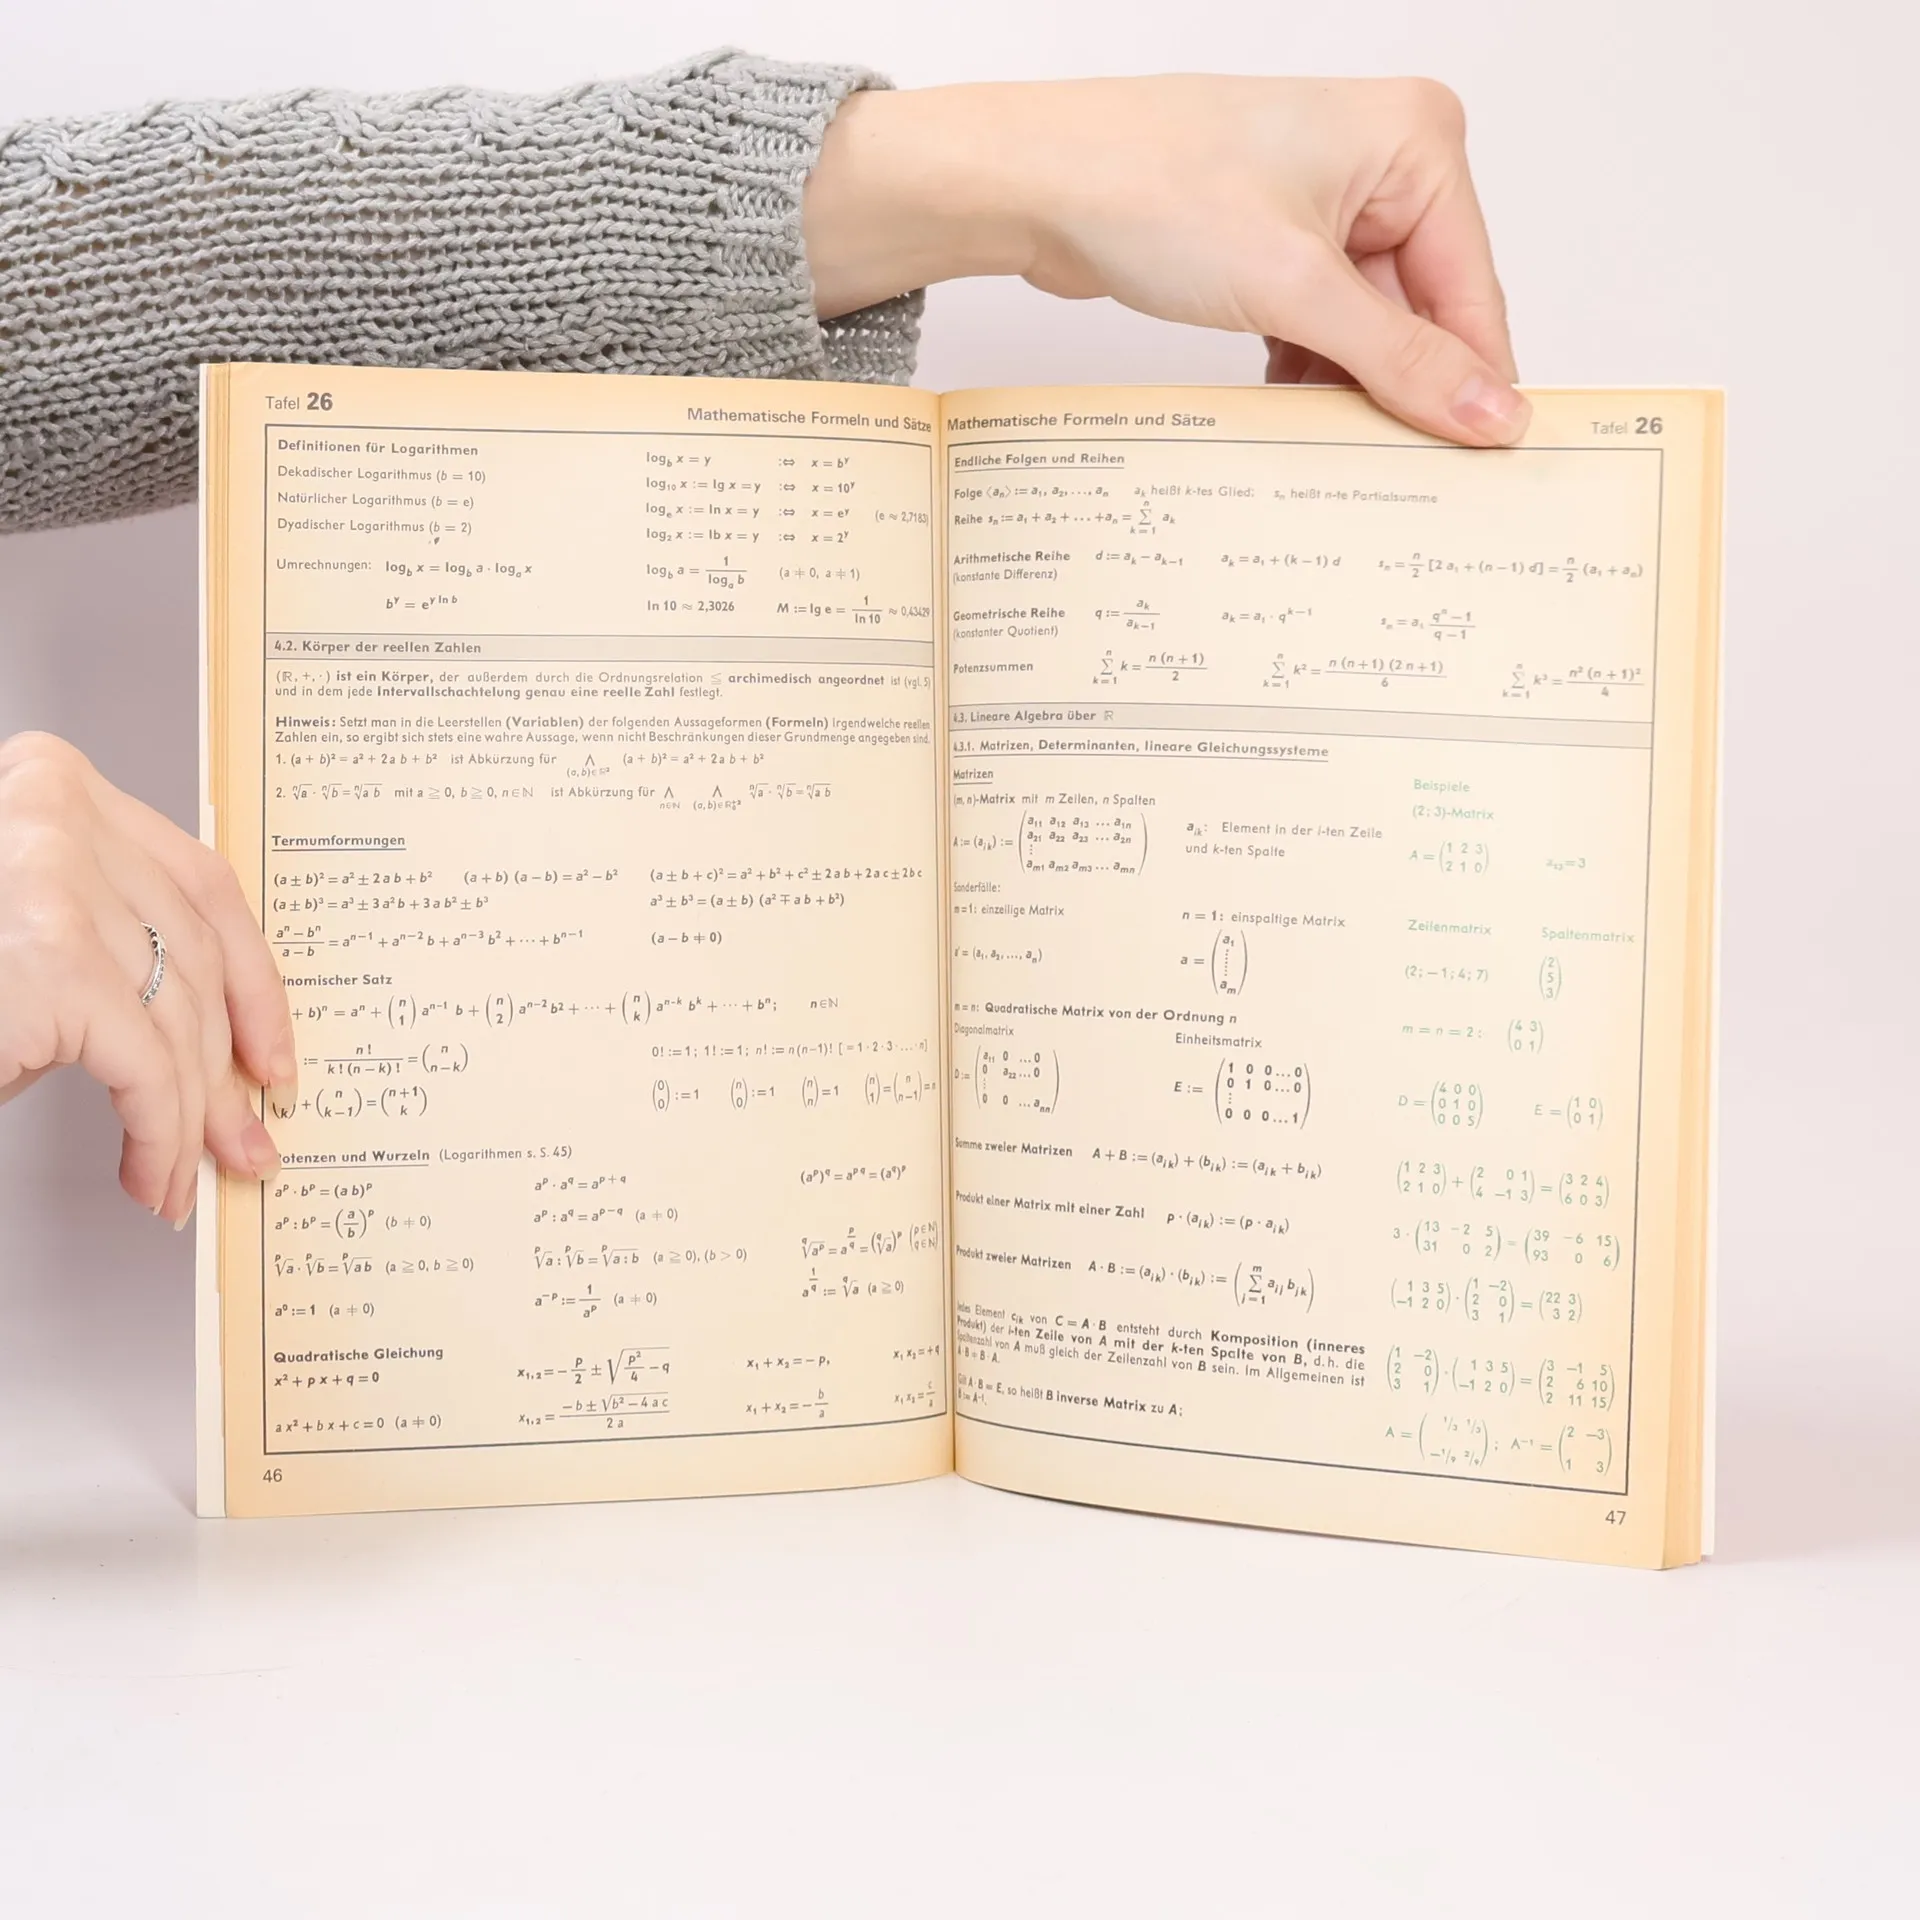 Tafel 26
Mathematische Formeln und Sätze
Definitionen für Logarithmen log_b x = y :⇔ x = b^y
Dekadischer Logarithmus (b = 10) log₁₀ x := lg x = y :⇔ x = 10^y
Natürlicher Logarithmus (b = e) log_e x := ln x = y :⇔ x = e^y (e ≈ 2,7183)
Dyadischer Logarithmus (b = 2) log₂ x := lb x = y :⇔ x = 2^y
Umrechnungen: log_b x = log_b a · log_a x log_b a = 1/(log_a b) (a ≠ 0, a ≠ 1)
b^y = e^(y ln b) ln 10 ≈ 2,3026 M := lg e = 1/(ln 10) ≈ 0,43429
4.2. Körper der reellen Zahlen
(ℝ, +, ·) ist ein Körper, der außerdem durch die Ordnungsrelation ≦ archimedisch angeordnet ist (vgl. 5)
und in dem jede Intervallschachtelung genau eine reelle Zahl festlegt.
Hinweis: Setzt man in die Leerstellen (Variablen) der folgenden Aussageformen (Formeln) irgendwelche reellen
Zahlen ein, so ergibt sich stets eine wahre Aussage, wenn nicht Beschränkungen dieser Grundmenge angegeben sind.
1. (a + b)² = a² + 2 a b + b² ist Abkürzung für ⋀ (a, b)∈ℝ² (a + b)² = a² + 2 a b + b²
2. ⁿ√a · ⁿ√b = ⁿ√(a b) mit a ≧ 0, b ≧ 0, n∈ℕ ist Abkürzung für ⋀ n∈ℕ ⋀ (a, b)∈ ⁿ√a · ⁿ√b = ⁿ√(a b)
Termumformungen
(a ± b)² = a² ± 2 a b + b² (a + b) (a − b) = a² − b² (a ± b + c)² = a² + b² + c² ± 2 a b + 2 a c ± 2 b c
(a ± b)³ = a³ ± 3 a² b + 3 a b² ± b³ a³ ± b³ = (a ± b) (a² ∓ a b + b²)
(aⁿ − bⁿ)/(a − b) = a^(n−1) + a^(n−2) b + a^(n−3) b² + ··· + b^(n−1) (a − b ≠ 0)
inomischer Satz
+ b)ⁿ = aⁿ + (n 1) a^(n−1) b + (n 2) a^(n−2) b² + ··· + (n k) a^(n−k) b^k + ··· + bⁿ; n∈ℕ
:= n!/(k! (n − k)!) = (n n−k) 0! := 1; 1! := 1; n! := n (n−1)! [= 1 · 2 · 3 · ... · n]
k) + (n k−1) = (n+1 k) (0 0) := 1 (n 0) := 1 (n n) = 1 (n 1) = (n n−1) = n
otenzen und Wurzeln (Logarithmen s. S. 45)
a^p · b^p = (a b)^p a^p · a^q = a^(p+q) (a^p)^q = a^(p q) = (a^q)^p
a^p : b^p = (a/b)^p (b ≠ 0) a^p : a^q = a^(p−q) (a ≠ 0)
ᵖ√a · ᵖ√b = ᵖ√(a b) (a ≧ 0, b ≧ 0) ᵖ√a : ᵖ√b = ᵖ√(a : b) (a ≧ 0), (b > 0) q√(a^p) = a^(p/q) = (q√a)^p (p∈ℕ q∈ℕ)
a⁰ := 1 (a ≠ 0) a^(−p) := 1/a^p (a ≠ 0) a^(1/q) := q√a (a ≧ 0)
Quadratische Gleichung
x² + p x + q = 0 x₁,₂ = − p/2 ± √(p²/4 − q) x₁ + x₂ = − p, x₁ x₂ = + q
a x² + b x + c = 0 (a ≠ 0) x₁,₂ = (−b ± √(b² − 4 a c))/(2 a) x₁ + x₂ = − b/a x₁ x₂ = c/a
46
Mathematische Formeln und Sätze
Tafel 26
Endliche Folgen und Reihen
Folge ⟨aₙ⟩ := a₁, a₂, ..., aₙ a_k heißt k-tes Glied; sₙ heißt n-te Partialsumme
Reihe sₙ := a₁ + a₂ + ... + aₙ = Σ k=1 n a_k
Arithmetische Reihe d := a_k − a_(k−1) a_k = a₁ + (k − 1) d sₙ = n/2 [2 a₁ + (n − 1) d] = n/2 (a₁ + aₙ)
(konstante Differenz)
Geometrische Reihe q := a_k/a_(k−1) a_k = a₁ · q^(k−1) sₙ = a₁ (qⁿ − 1)/(q − 1)
(konstanter Quotient)
Potenzsummen Σ k=1 n k = n (n + 1)/2 Σ k=1 n k² = n (n + 1) (2 n + 1)/6 Σ k=1 n k³ = n² (n + 1)²/4
4.3. Lineare Algebra über ℝ
4.3.1. Matrizen, Determinanten, lineare Gleichungssysteme
Matrizen Beispiele
(m, n)-Matrix mit m Zeilen, n Spalten (2; 3)-Matrix
A := (a_ik) := (a₁₁ a₁₂ a₁₃ ... a₁ₙ
a₂₁ a₂₂ a₂₃ ... a₂ₙ
⋮
a_m1 a_m2 a_m3 ... a_mn)
a_ik: Element in der i-ten Zeile
und k-ten Spalte
A = (1 2 3
2 1 0) a₁₃ = 3
Sonderfälle:
m = 1: einzeilige Matrix n = 1: einspaltige Matrix Zeilenmatrix Spaltenmatrix
= (a₁, a₂, ..., aₙ) a = (a₁ ⋮ a_m) (2; −1; 4; 7) (2 5 3)
m = n: Quadratische Matrix von der Ordnung n m = n = 2: (4 3
0 1)
Diagonalmatrix Einheitsmatrix
D := (a₁₁ 0 ... 0
0 a₂₂ ... 0
⋮
0 0 ... aₙₙ)
E := (1 0 0 ... 0
0 1 0 ... 0
⋮
0 0 0 ... 1)
D = (4 0 0
0 1 0
0 0 5) E = (1 0
0 1)
Summe zweier Matrizen A + B := (a_ik) + (b_ik) := (a_ik + b_ik)
(1 2 3
2 1 0) + (2 0 1
4 −1 3) = (3 2 4
6 0 3)
Produkt einer Matrix mit einer Zahl p · (a_ik) := (p · a_ik)
3 · (13 −2 5
31 0 2) = (39 −6 15
93 0 6)
Produkt zweier Matrizen A · B := (a_ik) · (b_ik) := (Σ j=1 m a_ij b_jk)
(1 3 5
−1 2 0) · (1 −2
2 0
3 1) = (22 3
3 2)
Jedes Element c_ik von C = A · B entsteht durch Komposition (inneres
Produkt) der i-ten Zeile von A mit der k-ten Spalte von B, d. h. die
Spaltenzahl von A muß gleich der Zeilenzahl von B sein. Im Allgemeinen ist
A · B ≠ B · A.
(1 −2
2 0
3 1) · (1 3 5
−1 2 0) = (3 −1 5
2 6 10
2 11 15)
Gilt A · B = E, so heißt B inverse Matrix zu A;
B := A⁻¹.
A = (1/3 1/3
−1/9 2/9); A⁻¹ = (2 −3
1 3)
47